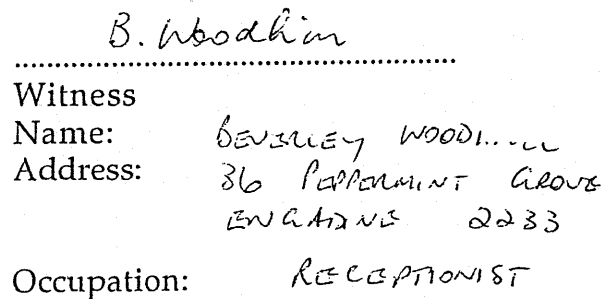 B.
Witness
Name: BEVERLEY
Address: 36 PEPPERMINT GROVE
ENGADINE 2233
Occupation: RECEPTIONIST